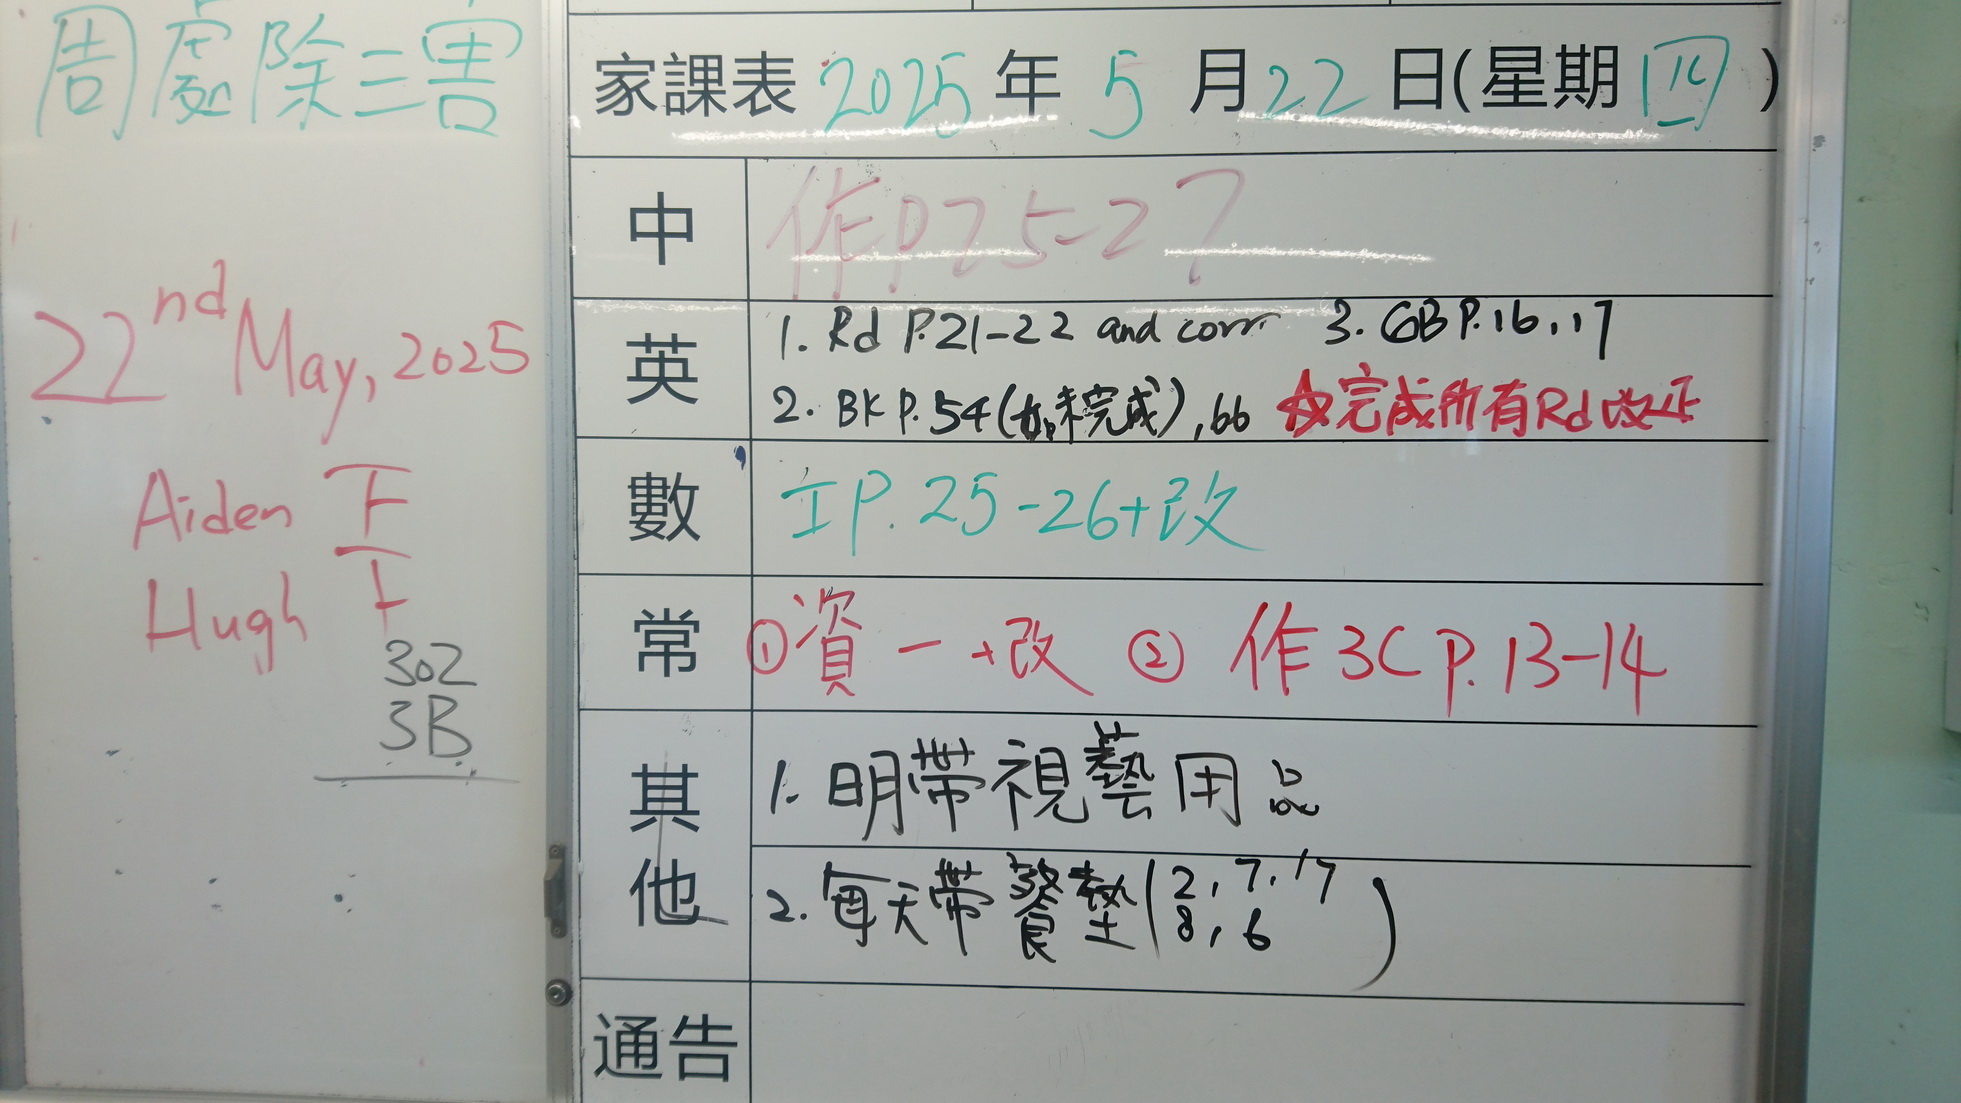 周處除三害
22nd May, 2025
Aiden F
Hugh F
302
3B
家課表 2025 年 5 月 22 日(星期四)
中 作P25-27
英 1. Rd P.21-22 and corr 3. GB P.16,17
2. BK P.54(如未完成),66 ☆完成所有Rd改正
數 工P.25-26+改
常 ①資一+改 ② 作3C P.13-14
其他 1. 明帶視藝用品
2. 每天帶餐墊(2,7,17
8,6)
通告